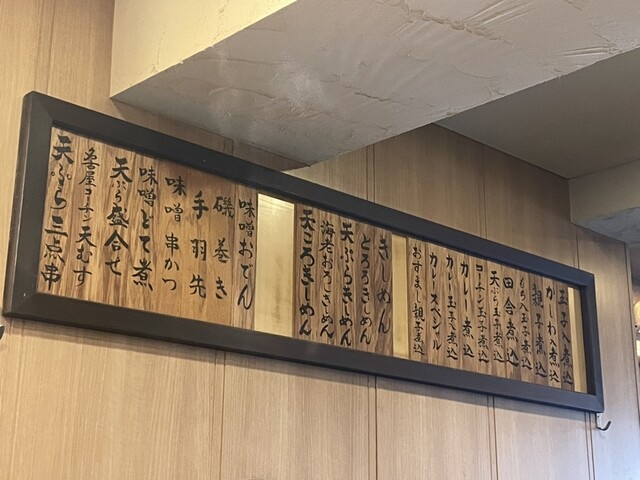 玉子入煮込
かしわ入煮込
親子煮込
もち入玉子煮込
田舎煮込
天ぷら玉子煮込
コーチン玉子煮込
カレー煮込
カレー玉子煮込
カレースペシャル
おすまし親子煮込
きしめん
とろろきしめん
天ぷらきしめん
海老おろしきしめん
天ころきしめん
味噌おでん
磯巻き
手羽先
味噌串かつ
味噌どて煮
天ぷら盛合せ
名古屋コーチン天むす
天ぷら三点串